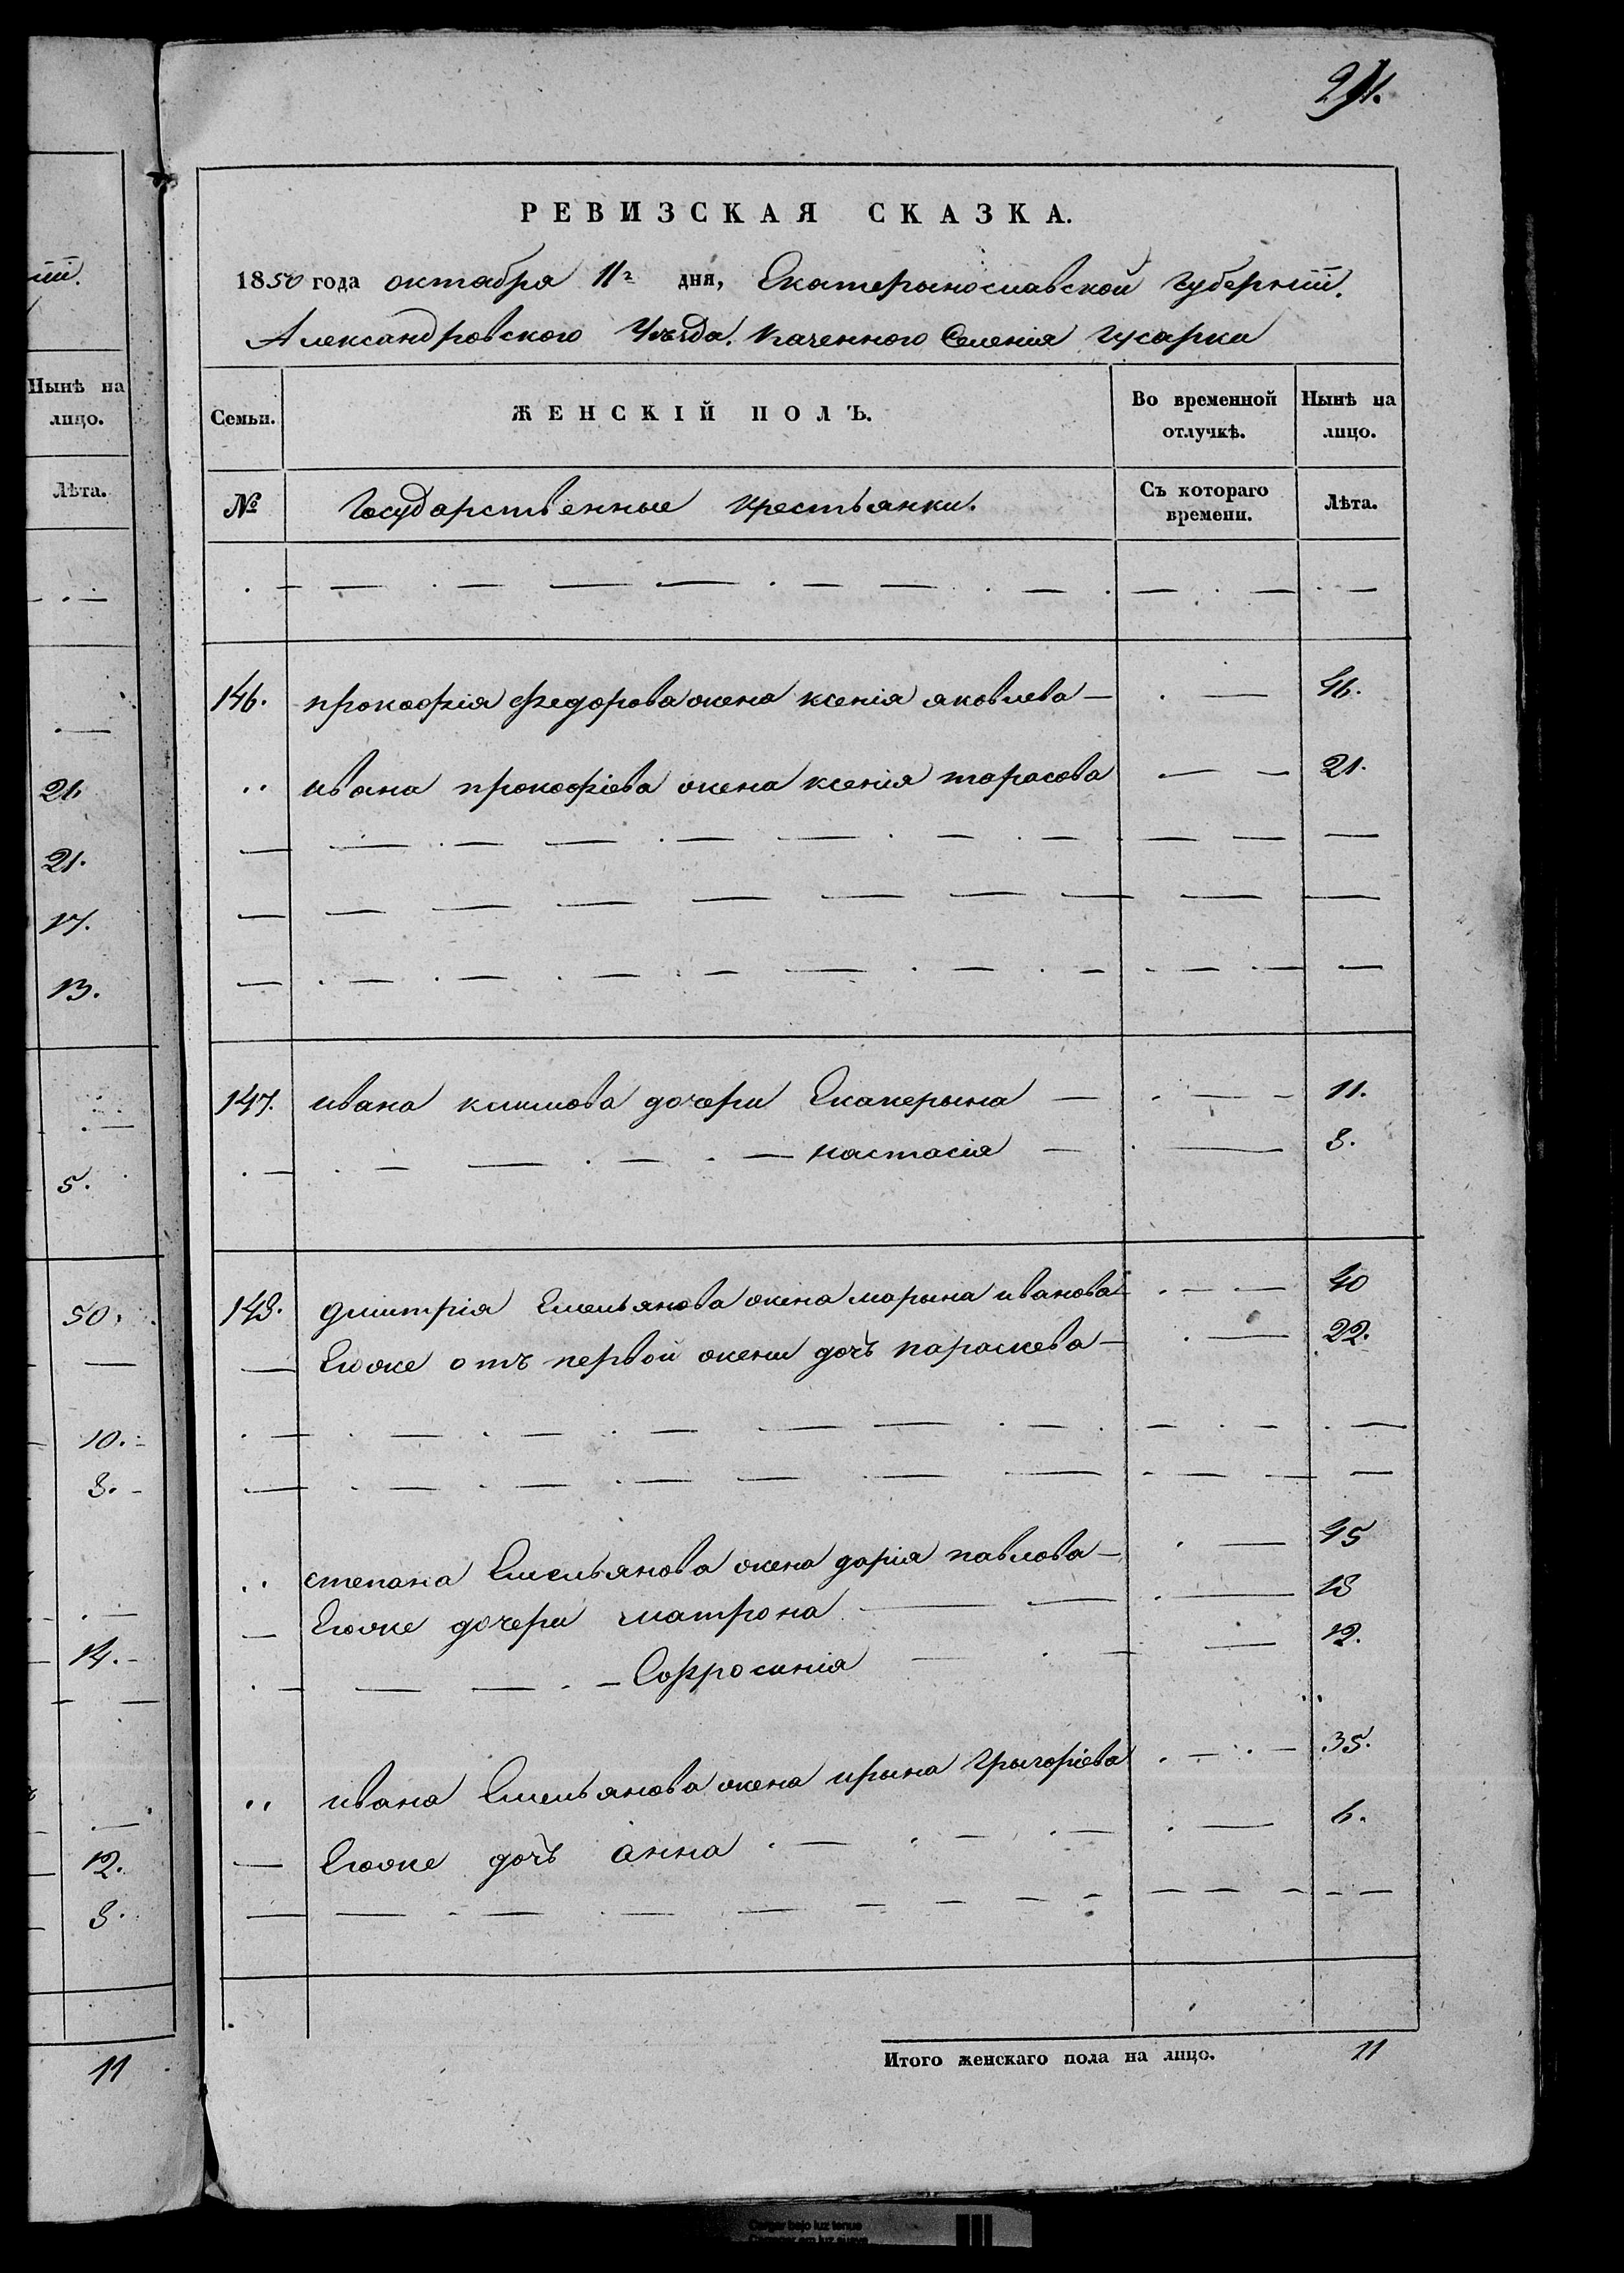 291.
РЕВИЗСКАЯ СКАЗКА.
1850 года октября 11г дня, Екатерынославской губерніи.
Александровского Уѣзда. Казенного Селенія Гусарки
Семьи. ЖЕНСКІЙ ПОЛЪ. Во временной отлучкѣ. Нынѣ на лицо.
№ Государственные крестьянки. Съ котораго времени. Лѣта.
146. прокофія федорова жена ксенія яковлева — 46.
ивана прокофіева жена ксенія тарасова 21.
147. ивана климова дочери Екатерына — 11.
настасія — 8.
148. дмитрія Емельянова жена марына иванова 40
Егоже отъ первой жены дочь параскева — 22.
степана Емельянова жена дарія павлова — 45
Егоже дочери матрона 18
Ефросинія 12.
ивана Емельянова жена ирына Григоріева 35.
Егоже дочь анна 6.
Итого женскаго пола на лицо. 11
Нынѣ на лицо.
Лѣта.
21.
21.
17.
13.
5.
50.
10.
8.
14.
12.
8.
11